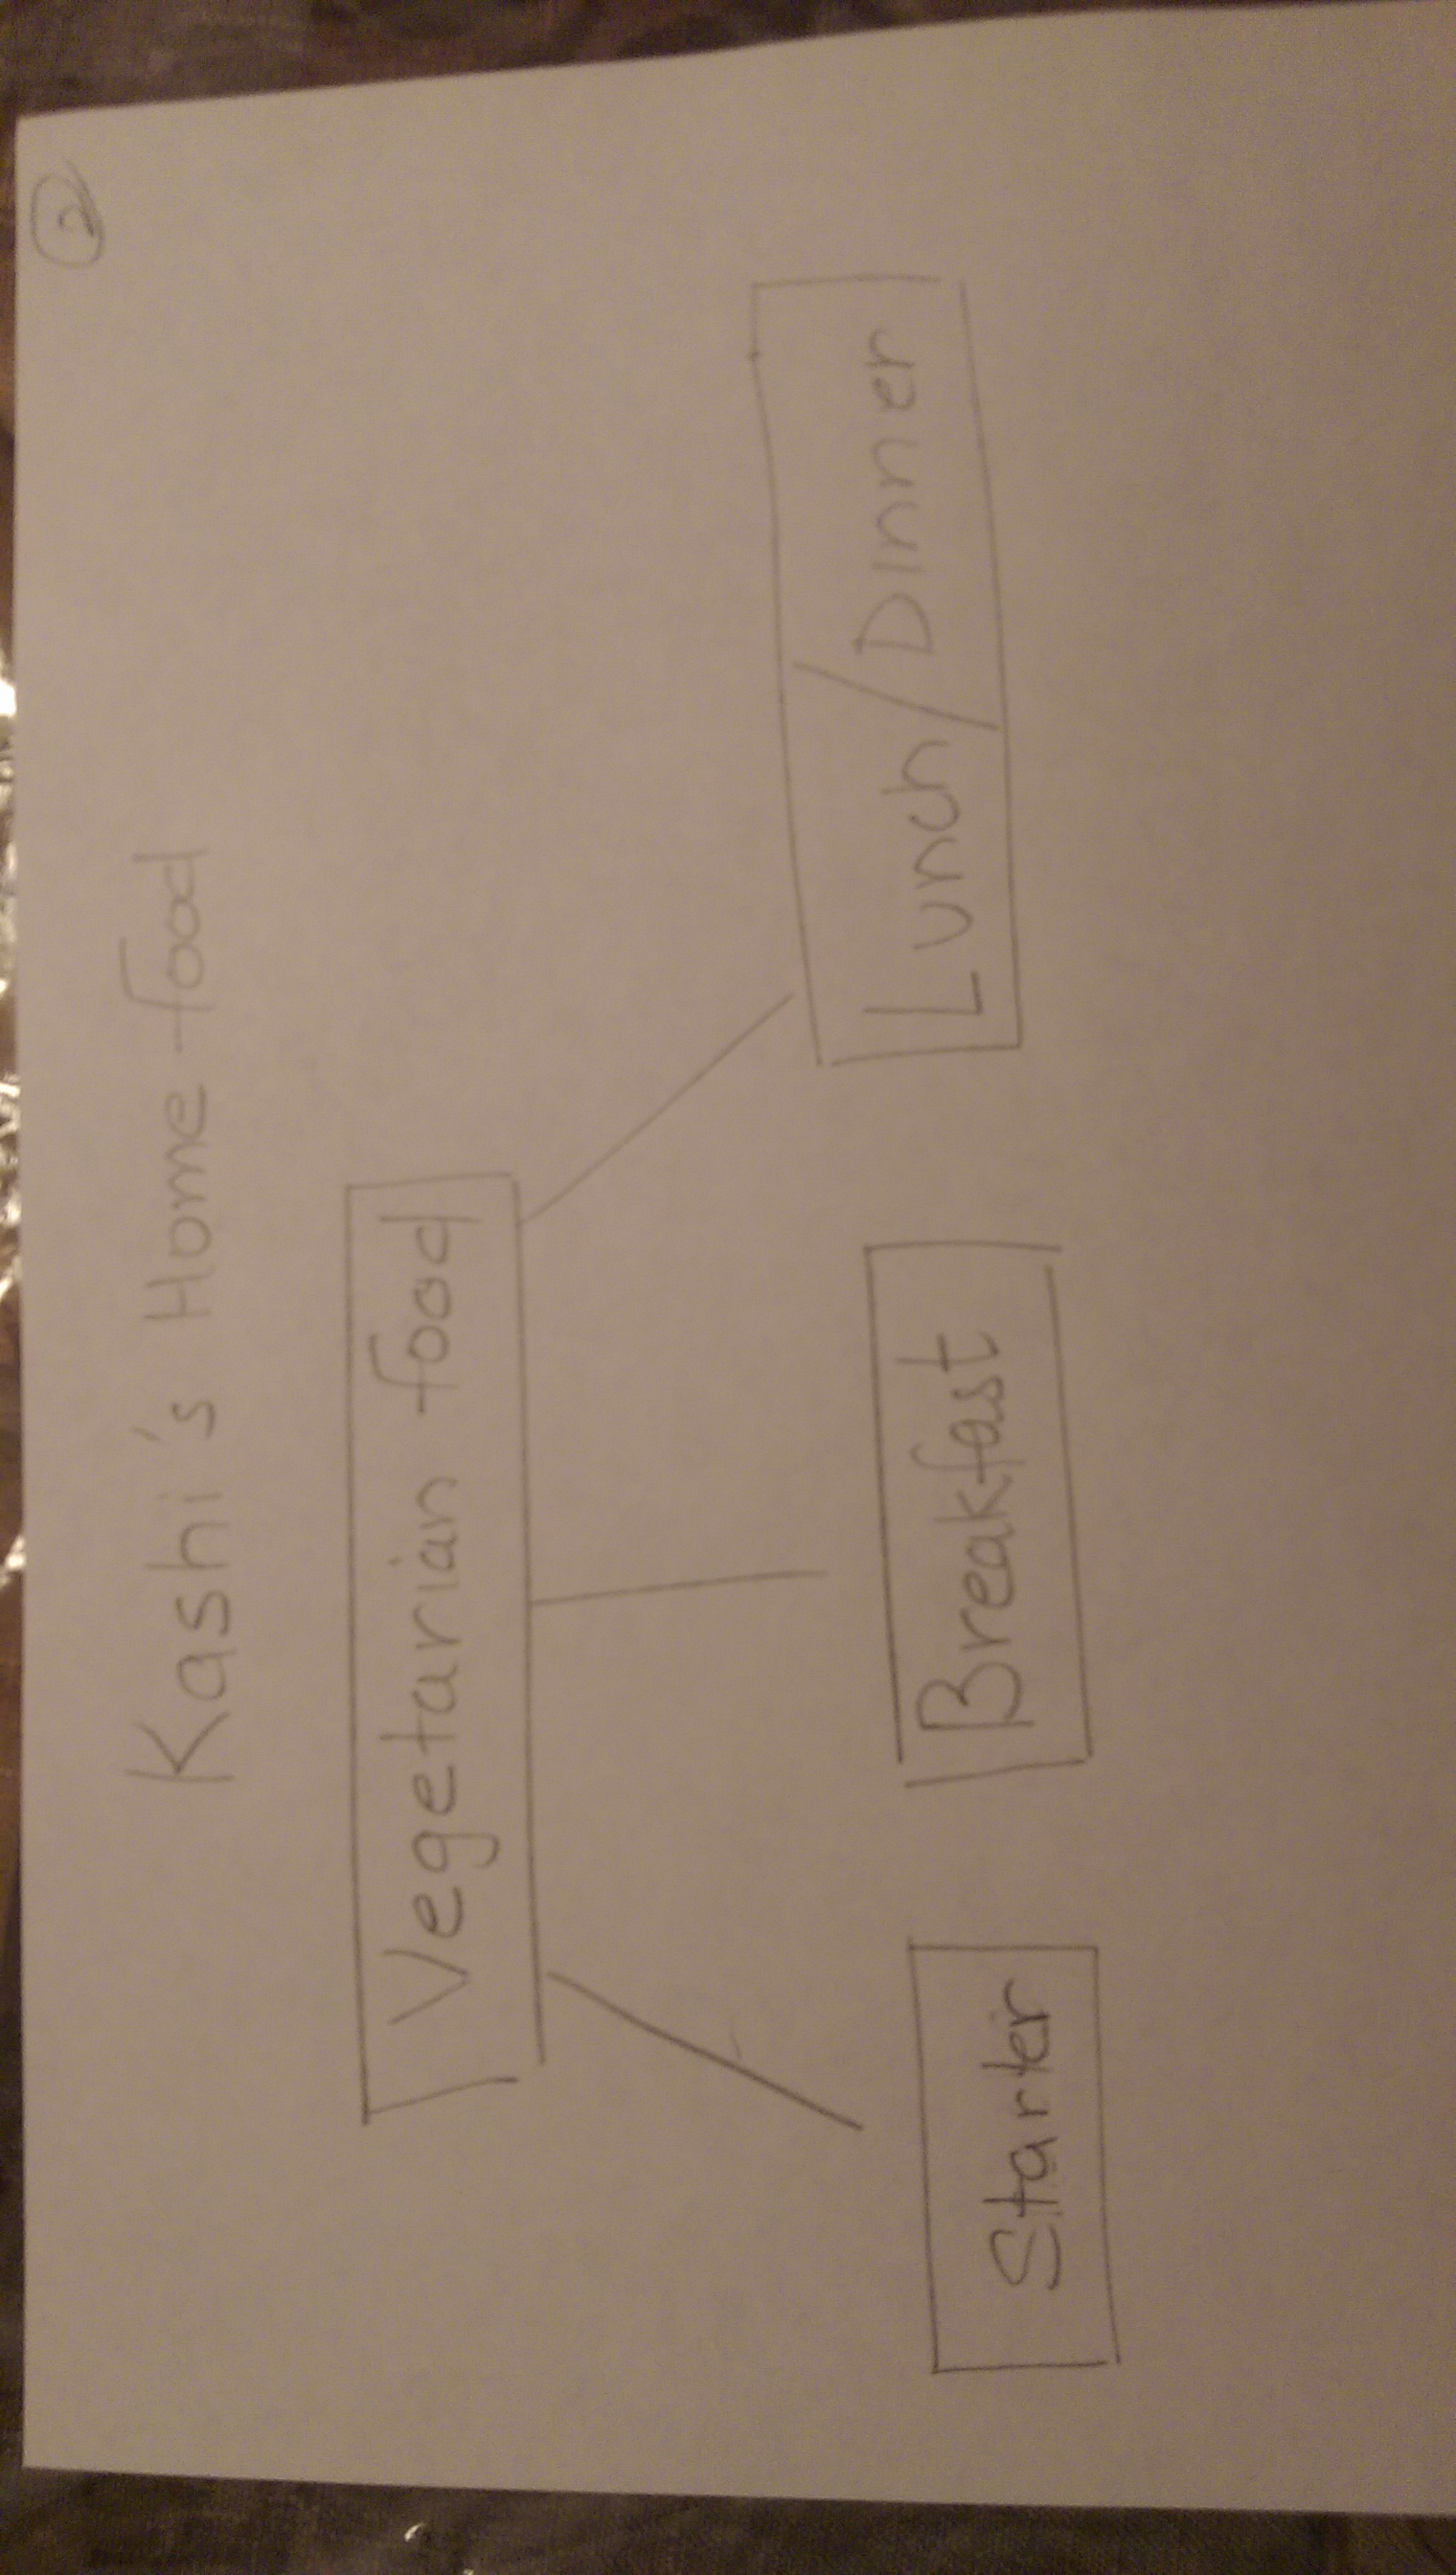 2
Kashi's Home food
Vegetarian food
Starter
Breakfast
Lunch/Dinner